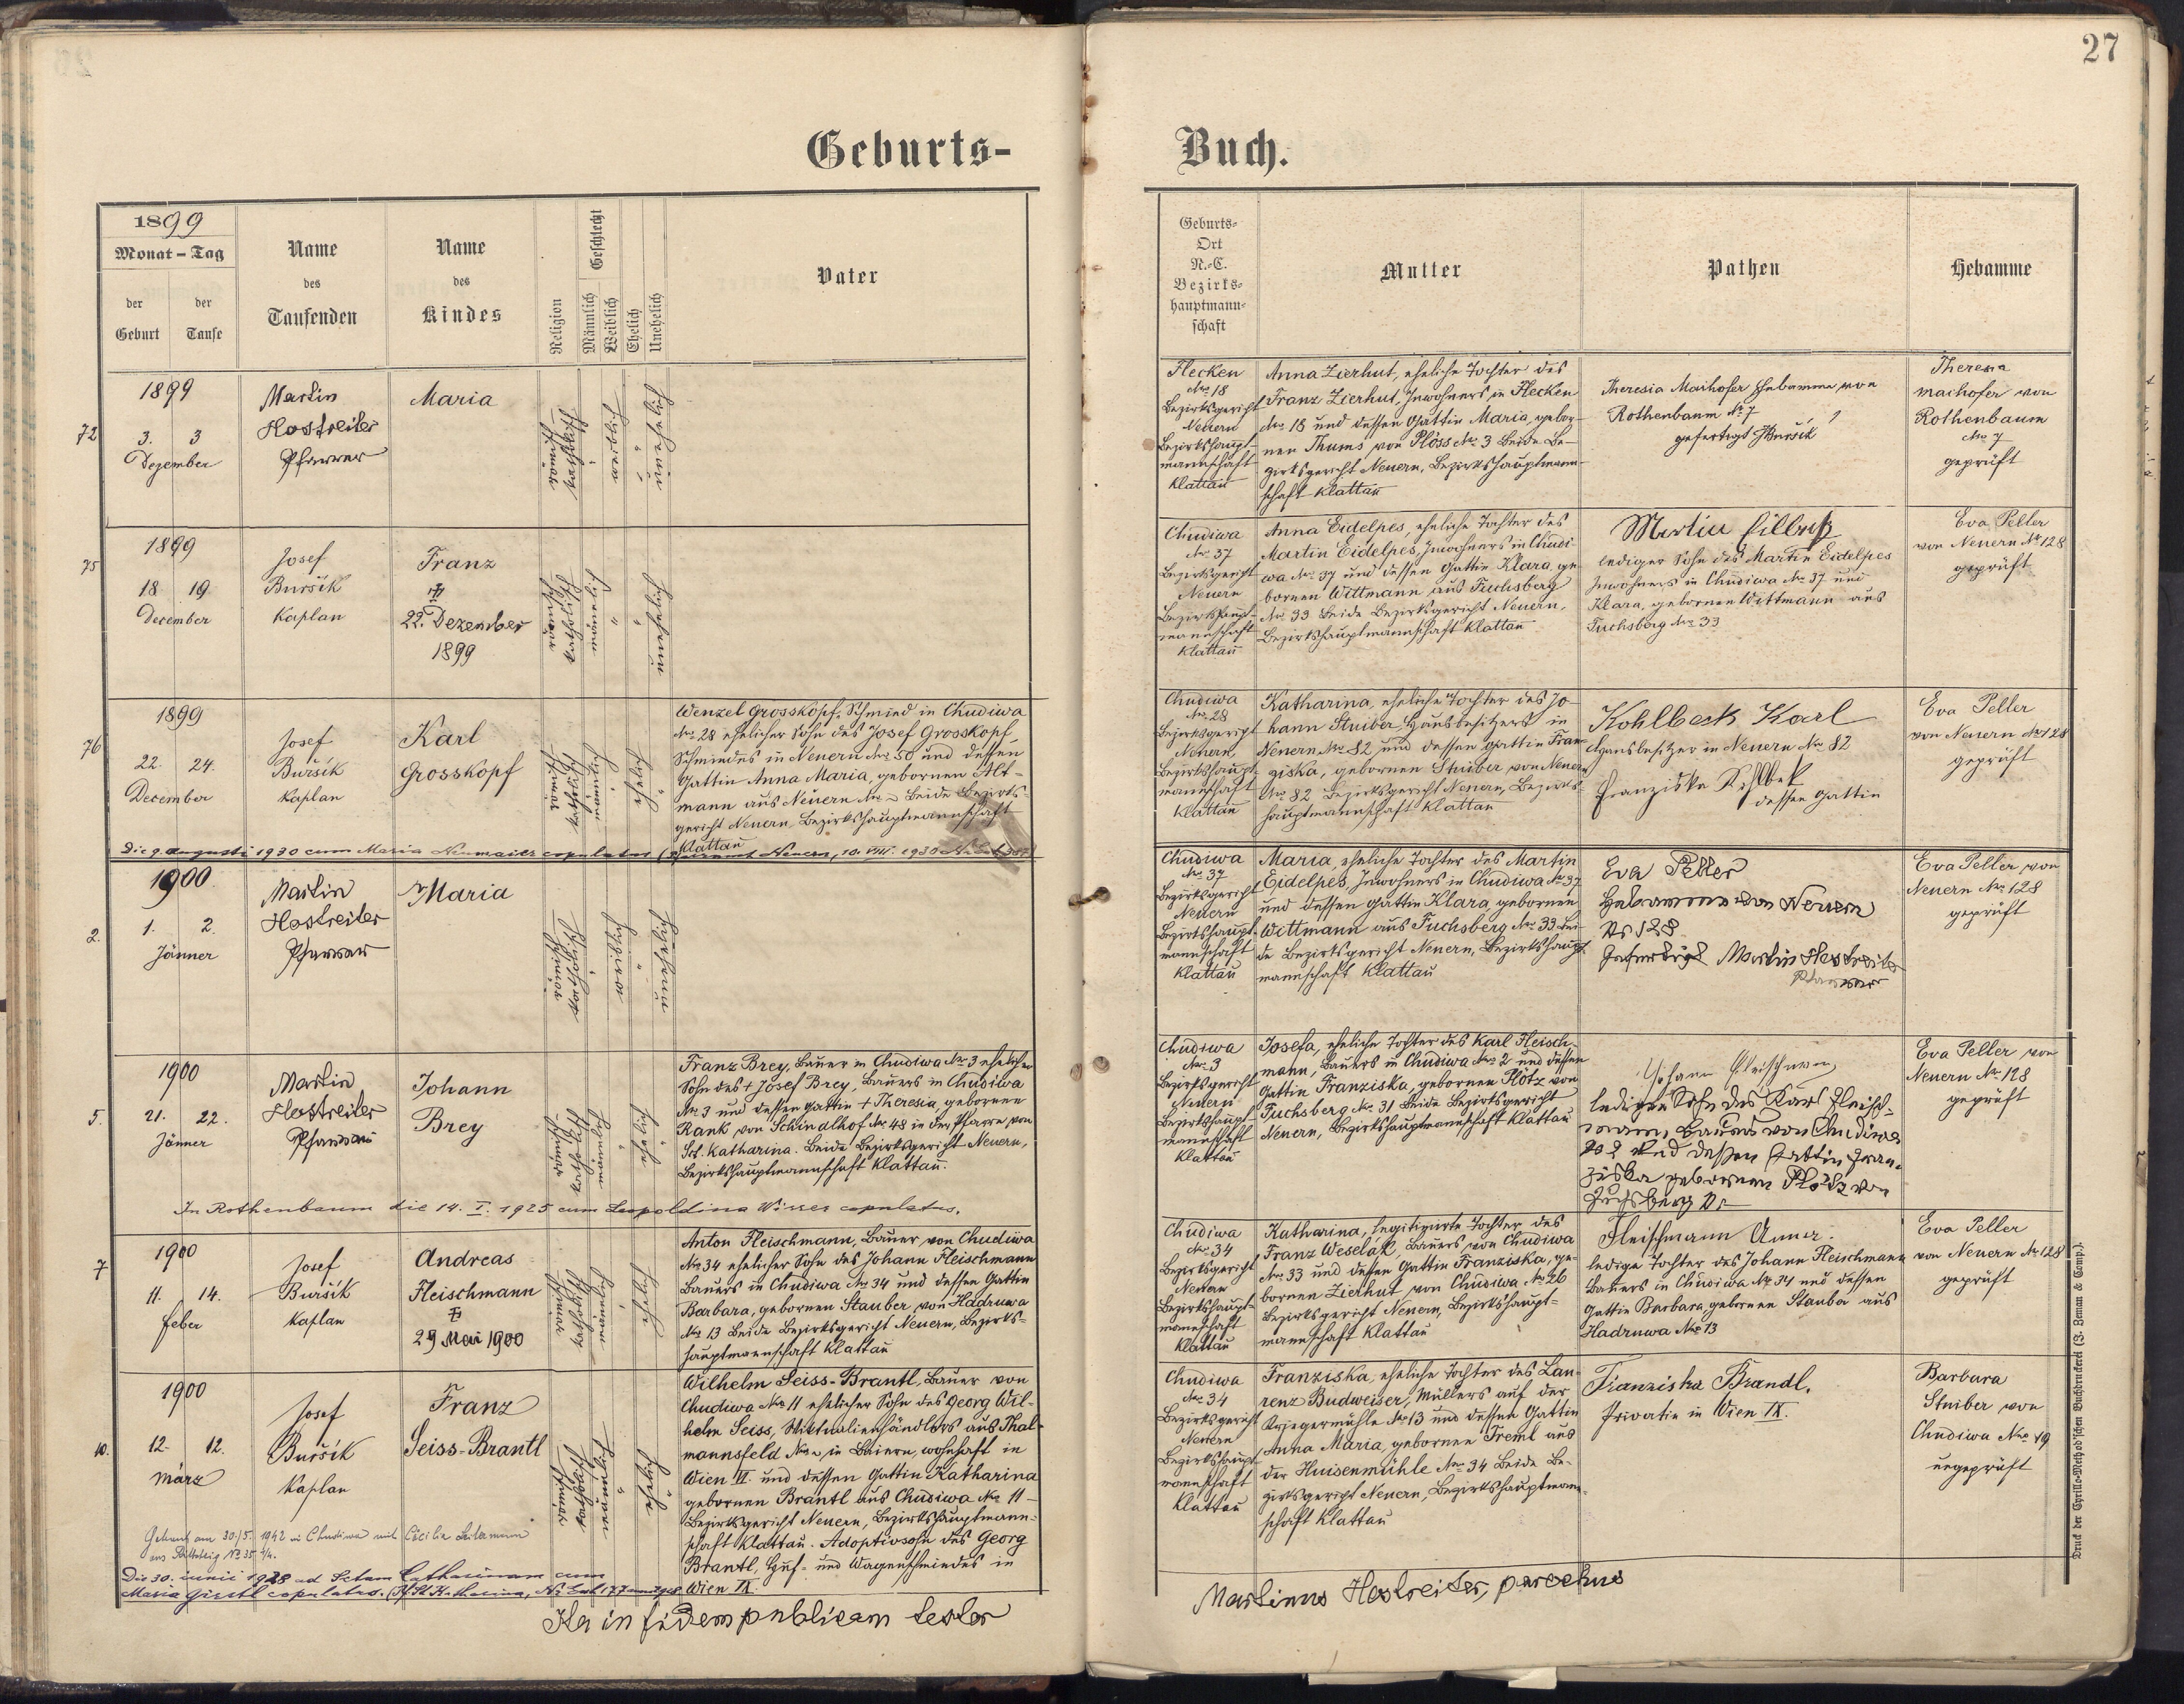 27
Geburts-
Buch.
1899
Monat - Tag
der Geburt
der Taufe
Name des Taufenden
Name des Kindes
Religion
Geschlecht
Männlich
Weiblich
Ehelich
Unehelich
Vater
Geburts-
Ort
N.-C.
Bezirks-
hauptmann-
schaft
Mutter
Pathen
Hebamme
72
1899
3. 3
Dezember
Martin
Hostreiter
Pfarrer
Maria
römisch
katholisch
weiblich
unehelich
Flecken
No. 18
Bezirksgericht
Neuern
Bezirkshaupt-
mannschaft
Klattau
Anna Zierhut, eheliche Tochter des
Franz Zierhut, Inwohners in Flecken
No. 18 und dessen Gattin Maria, gebor-
nen Thums von Plöss No. 3 beide Be-
zirksgericht Neuern, Bezirkshauptmann-
schaft Klattau
Theresia Maihofer Hebamme von
Rothenbaum No 7
gefertigt JBuršik
Theresia
Maihofer von
Rothenbaum
No. 7
geprüft
75
1899
18 19.
December
Josef
Buršik
Kaplan
Franz
22. Dezember
1899
römisch
katholisch
männlich
unehelich
Chudiwa
No. 37
Bezirksgericht
Neuern
Bezirkshaupt-
mannschaft
Klattau
Anna Eidelpes, eheliche Tochter des
Martin Eidelpes, Inwohners in Chudi-
wa No. 37 und dessen Gattin Klara, ge-
bornen Wittmann aus Fuchsberg
No. 33 beide Bezirksgericht Neuern,
Bezirkshauptmannschaft Klattau
Martin
lediger Sohn des Martin Eidelpes
Inwohners in Chudiwa No. 37 und
Klara, gebornen Wittmann aus
Fuchsberg No. 33
Eva Peller
von Neuern No 128
geprüft
76
1899
22. 24.
December
Josef
Buršik
Kaplan
Karl
Grosskopf
römisch
katholisch
männlich
ehelich
Wenzel Grosskopf, Schmied in Chudiwa
No. 28 ehelicher Sohn des Josef Grosskopf,
Schmiedes in Neuern No. 50 und dessen
Gattin Anna Maria, gebornen Alt-
mann aus Neuern No. – beide Bezirks-
gericht Neuern, Bezirkshauptmannschaft
Klattau
Chudiwa
No. 28
Bezirksgericht
Neuern,
Bezirkshaupt-
mannschaft
Klattau
Katharina, eheliche Tochter des Jo-
hann Stuiber, Hausbesitzers in
Neuern No. 82 und dessen Gattin Fran-
ziska, gebornen Stuiber von Neuern
No. 82 Bezirksgericht Neuern, Bezirks-
hauptmannschaft Klattau
Kohlbeck Karl
Hausbesitzer in Neuern No. 82
Franziska Kohlbek
dessen Gattin
Eva Peller
von Neuern No 128
geprüft
Die 9. augusti 1930 cum Maria Neumaier copulatus (Pfarramt Neuern, 10. VIII. 1930
2.
1900
1. 2.
Jänner
Martin
Hostreiter
Pfarrer
Maria
römisch
katholisch
weiblich
unehelich
Chudiwa
No. 37
Bezirksgericht
Neuern
Bezirkshaupt-
mannschaft
Klattau
Maria, eheliche Tochter des Martin
Eidelpes, Inwohners in Chudiwa No. 37
und dessen Gattin Klara, gebornen
Wittmann aus Fuchsberg No. 33. Bei-
de Bezirksgericht Neuern, Bezirkshaupt-
mannschaft Klattau
Eva Peller
Hebamme von Neuern
No 128
Gefertigt Martin Hostreiter
Pfarrer
Eva Peller von
Neuern No. 128
geprüft
5.
1900
21. 22.
Jänner
Martin
Hostreiter
Pfarrer
Johann
Brey
römisch
katholisch
männlich
ehelich
Franz Brey, Bauer in Chudiwa No. 3 ehelicher
Sohn des † Josef Brey, Bauers in Chudiwa
No. 3 und dessen Gattin † Theresia, gebornen
Rank von Schindlhof No. 48 in der Pfarre von
Sct. Katharina. Beide Bezirksgericht Neuern,
Bezirkshauptmannschaft Klattau.
Chudiwa
No. 3
Bezirksgericht
Neuern
Bezirkshaupt-
mannschaft
Klattau
Josefa, eheliche Tochter des Karl Fleisch-
mann, Bauers in Chudiwa No. 2 und dessen
Gattin Franziska, gebornen Plötz von
Fuchsberg No. 31 beide Bezirksgericht
Neuern, Bezirkshauptmannschaft Klattau
Johann Fleischmann
lediger Sohn des Karl Fleisch-
mann, Bauers von Chudiwa
No 2 und dessen Gattin Fran-
ziska gebornen Plötz von
Fuchsberg No
Eva Peller von
Neuern No. 128
geprüft
In Rothenbaum die 14. I. 1925 cum Leopoldina copulatus.
7
1900
11. 14.
Feber
Josef
Buršik
Kaplan
Andreas
Fleischmann
29 Mai 1900
römisch
katholisch
männlich
ehelich
Anton Fleischmann, Bauer von Chudiwa
No. 34 ehelicher Sohn des Johann Fleischmann
Bauers in Chudiwa No. 34 und dessen Gattin
Barbara, gebornen Stauber von Hadruwa
No. 13 beide Bezirksgericht Neuern, Bezirks-
hauptmannschaft Klattau
Chudiwa
No. 34
Bezirksgericht
Neuern
Bezirkshaupt-
mannschaft
Klattau
Katharina, legitimirte Tochter des
Franz Weselak, Bauers von Chudiwa
No. 33 und dessen Gattin Franziska, ge-
bornen Zierhut von Chudiwa No. 26
Bezirksgericht Neuern, Bezirkshaupt-
mannschaft Klattau
Fleischmann Anna.
ledige Tochter des Johann Fleischmann
Bauers in Chudiwa No. 34 und dessen
Gattin Barbara, gebornen Stauber aus
Hadruwa No. 13
Eva Peller
von Neuern No. 128
geprüft
10.
1900
12. 12.
März
Josef
Buršik
Kaplan
Franz
Seiss-Brantl
römisch
katholisch
männlich
ehelich
Wilhelm Seiss-Brantl, Bauer von
Chudiwa No. 11 ehelicher Sohn des Georg Wil-
helm Seiss, Viktualienhändlers aus Thal-
mannsfeld No. – in Baiern, wohnhaft in
Wien II. und dessen Gattin Katharina
gebornen Brantl aus Chudiwa No. 11 –
Bezirksgericht Neuern, Bezirkshauptmann-
schaft Klattau. Adoptivsohn des Georg
Brantl, Huf- und Wagenschmiedes in
Wien IX.
Chudiwa
No. 34
Bezirksgericht
Neuern
Bezirkshaupt-
mannschaft
Klattau
Franziska, eheliche Tochter des Lau-
renz Budweiser, Müllers auf der
Kriegermühle No. 13 und dessen Gattin
Anna Maria, gebornen Treml aus
der Huisenmühle No. 34 beide Be-
zirksgericht Neuern, Bezirkshauptmann-
schaft Klattau
Franziska Brandl.
Private in Wien IX.
Barbara
Stuiber von
Chudiwa No. 19
ungeprüft
Getraut am 30./5. 1942 in Chudiwa mit Cäcilia
aus No 35
Die 30. iunii 1928 ad Sctam Catharinam cum
Maria Girstl copulatus.
Ita in fidem publicam testor
Martinus Hostreiter, parochus
Druck der Cyrillo-Method'schen Buchdruckerei (J. Zeman & Comp.).